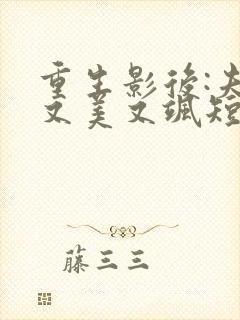 重生影後:夫
又美又颯短
藤三三